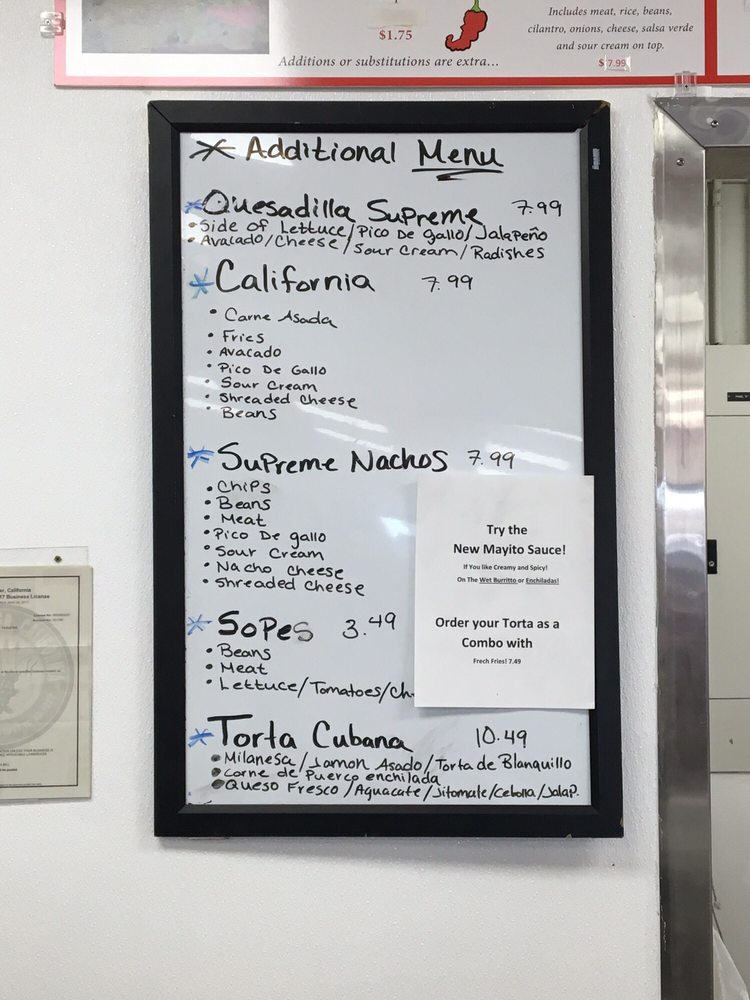 $1.75
Additions or substitutions are extra...
Includes meat, rice, beans,
cilantro, onions, cheese, salsa verde
and sour cream on top.
$7.99
Additional Menu
Quesadilla Supreme 7.99
Side of Lettuce/Pico De gallo/Jalapeño
Avacado/Cheese/Sour Cream/Radishes
California 7.99
Carne Asada
Fries
Avacado
Pico De Gallo
Sour Cream
Shreaded Cheese
Beans
Supreme Nachos 7.99
Chips
Beans
Meat
Pico De gallo
Sour Cream
Nacho Cheese
Shreaded Cheese
Sopes 3.49
Beans
Meat
Lettuce/Tomatoes/Ch
Try the
New Mayito Sauce!
If You like Creamy and Spicy!
On The Wet Burritto or Enchiladas!
Order your Torta as a
Combo with
Frech Fries! 7.49
Torta Cubana 10.49
Milanesa/Jamon Asado/Torta de Blanquillo
Carne de Puerco enchilada
Queso Fresco/Aguacate/Jitomate/Cebolla/Jalap.
, California
Business License